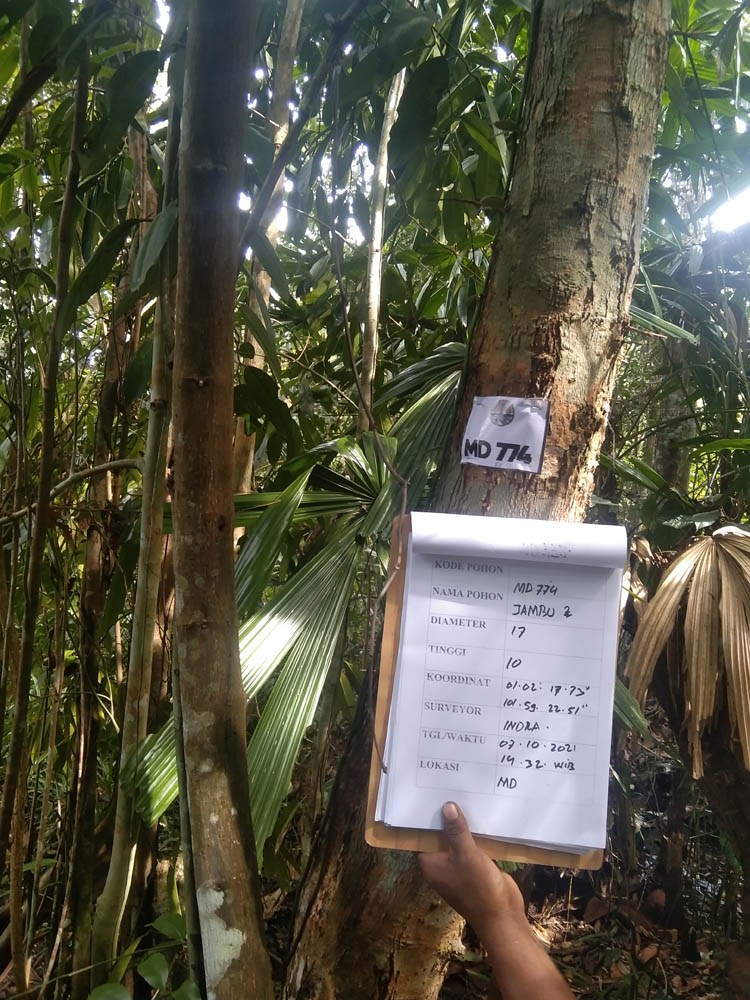 MD 774
KODE POHON MD 774
NAMA POHON JAMBU 2
DIAMETER 17
TINGGI 10
KOORDINAT 01.02'. 17.73"
101.59. 22.51"
SURVEYOR INDRA.
TGL/WAKTU 07.10.2021
19.32. WIB
LOKASI MD